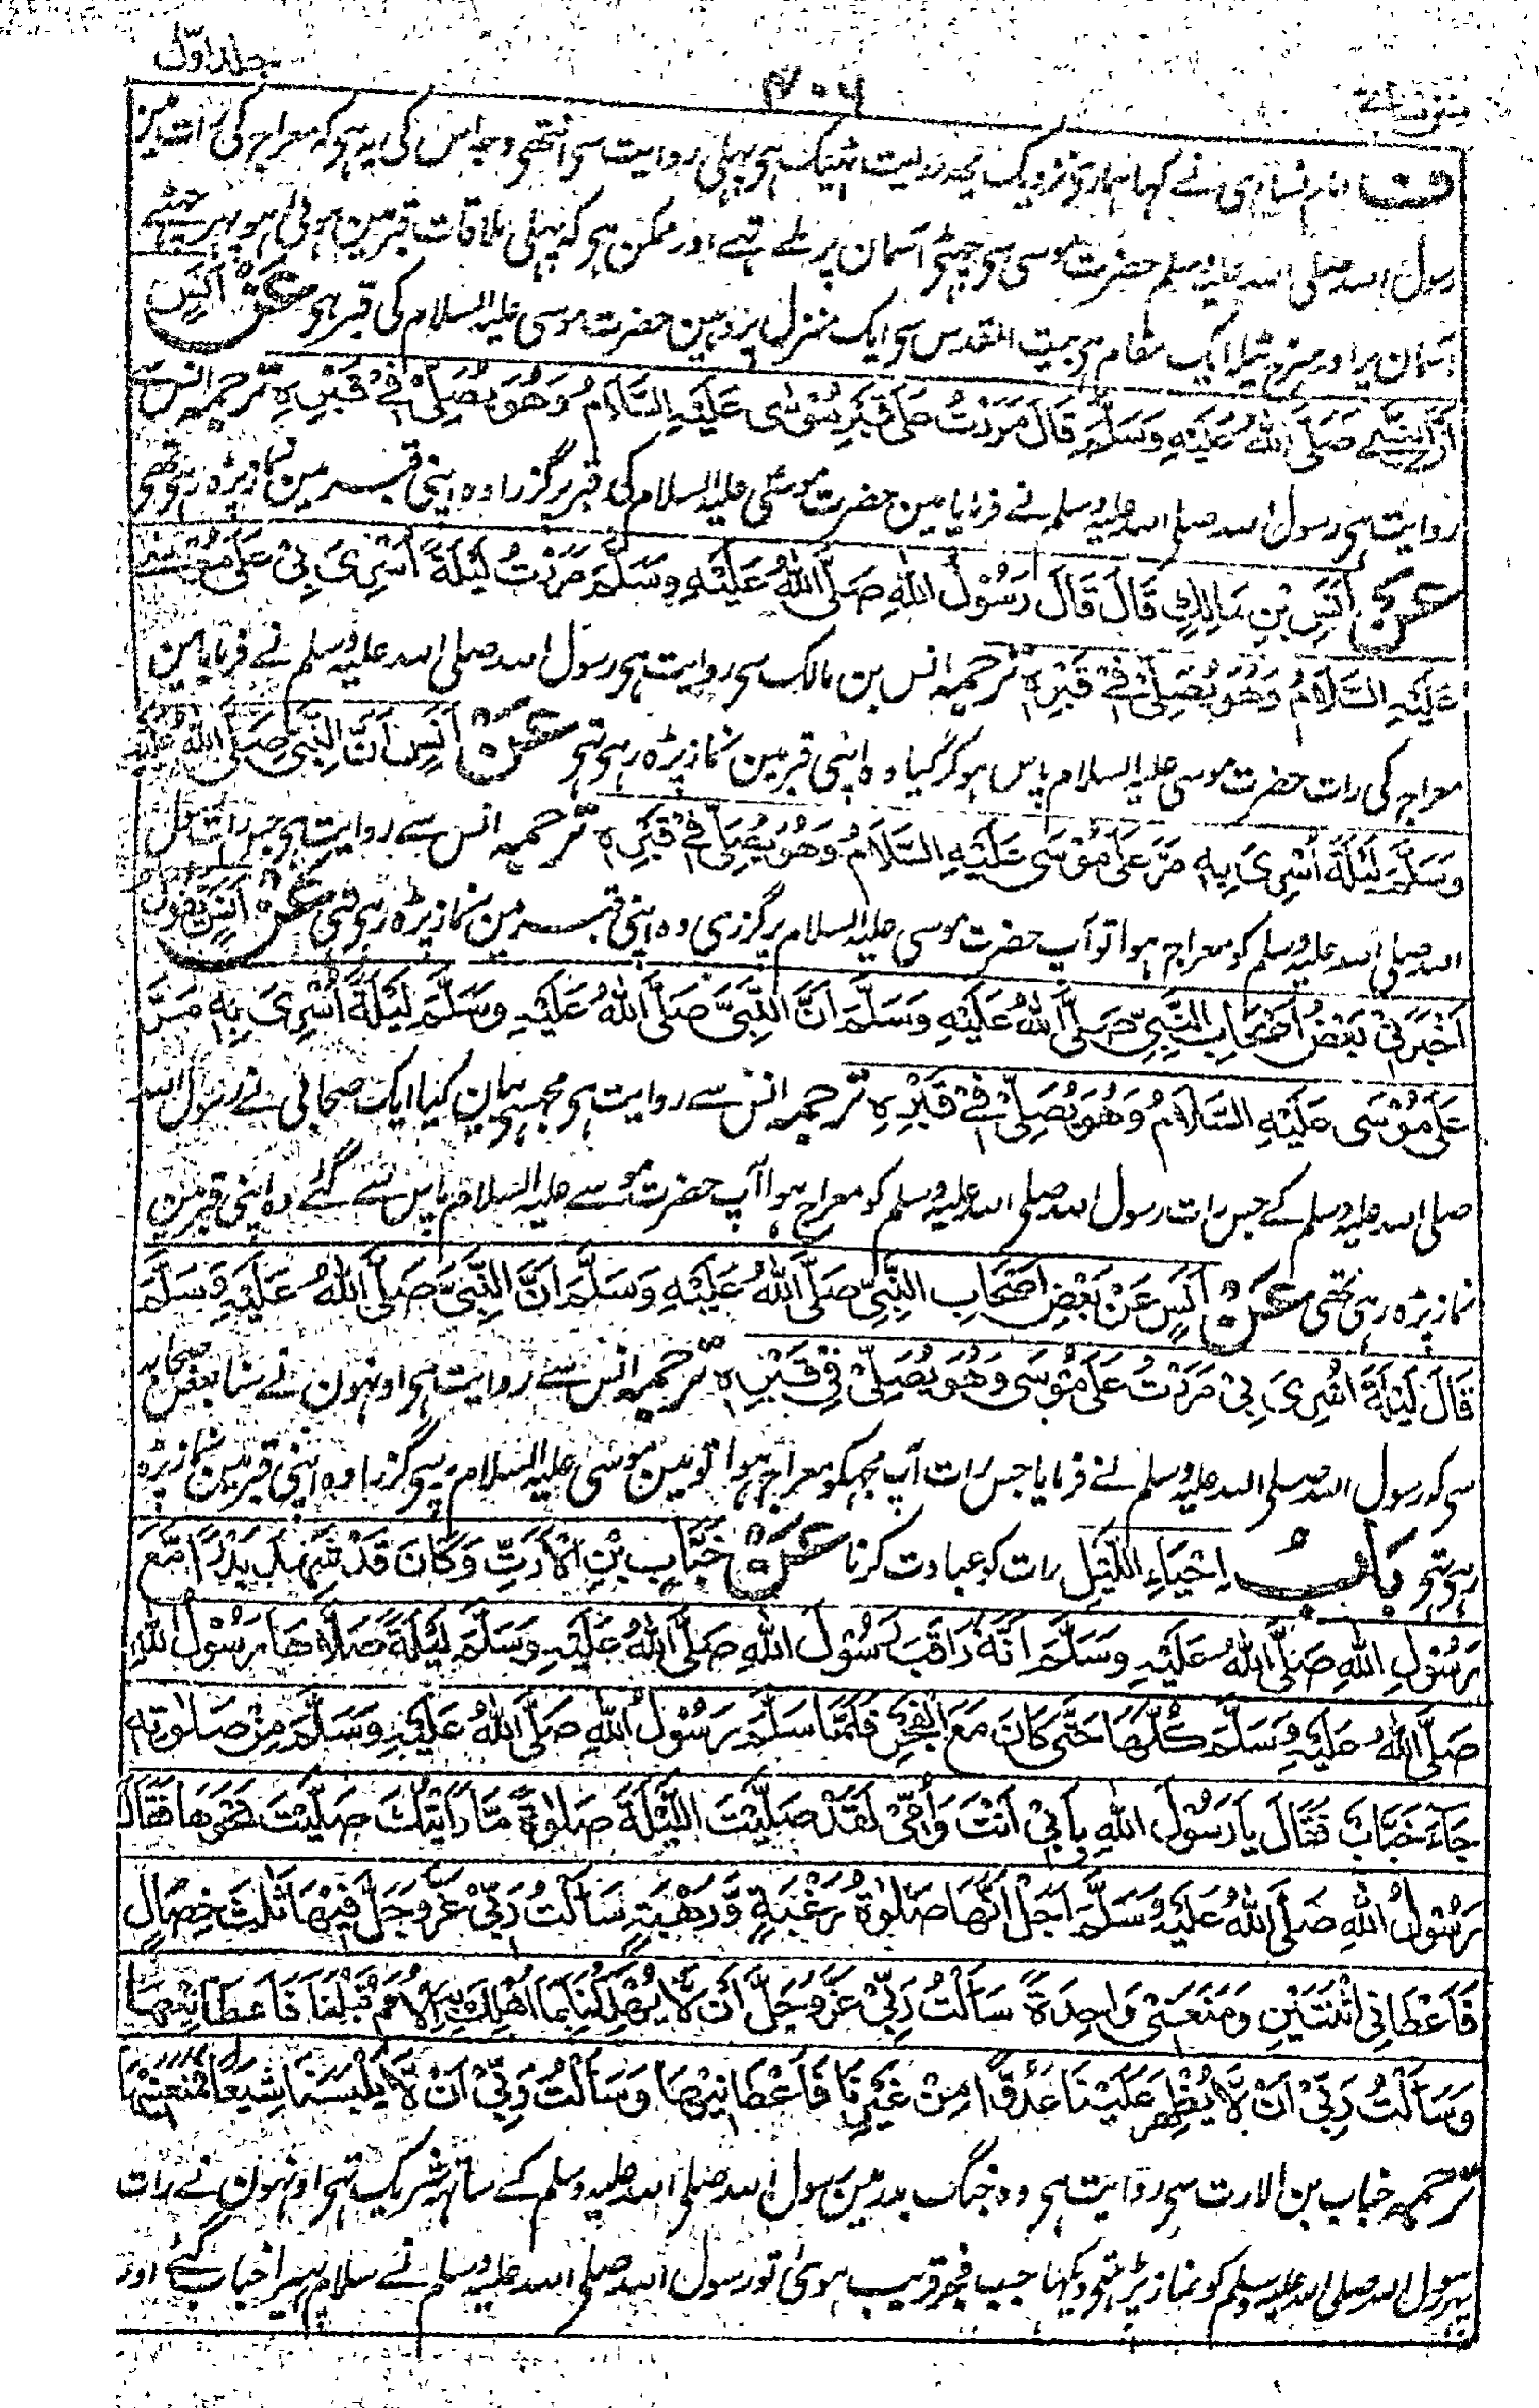 جلد اول
۴۰۶
سنن نسائی
ف امام نسائی نے کہا ہمارے نزدیک یہ روایت ٹھیک ہی پہلی روایت سی انتهی وجہ اس کی یہ ہی کہ معراج کی رات میں
رسول اللہ صلی اللہ علیہ وسلم حضرت موسی سی چھٹی آسمان پر ملے تہے اور ممکن ہی کہ پہلی ملاقات قبر مین ہوئی ہو پہر چھٹے
آسمان پر اور سرخ ٹیلا ایک مقام ہی بیت المقدس سی ایک منزل پر وہین حضرت موسی علیہ السلام کی قبر ہی عَنْ اَنَسٍ
اَنَّ النَّبِيَّ صَلَّى اللهُ عَلَيْهِ وَسَلَّمَ قَالَ مَرَرْتُ عَلٰى قَبْرِ مُوْسٰى عَلَيْهِ السَّلَامُ وَهُوَ يُصَلِّىْ فِىْ قَبْرِهٖ ترجمہ انس سے
روایت ہی رسول اللہ صلی اللہ علیہ وسلم نے فرمایا مین حضرت موسی علیہ السلام کی قبر پر گزرا وہ اپنی قبر مین نماز پڑہ رہی تھی
عَنْ اَنَسِ بْنِ مَالِكٍ قَالَ قَالَ رَسُوْلُ اللهِ صَلَّى اللهُ عَلَيْهِ وَسَلَّمَ مَرَرْتُ لَيْلَةً اُسْرِىَ بِىْ عَلٰى مُوْسٰى
عَلَيْهِ السَّلَامُ وَهُوَ يُصَلِّىْ فِىْ قَبْرِهٖ ترجمہ انس بن مالک سی روایت ہی رسول اللہ صلی اللہ علیہ وسلم نے فرمایا مین
معراج کی رات حضرت موسی علیہ السلام پاس ہو کر گیا وہ اپنی قبر مین نماز پڑہ رہی تہی عَنْ اَنَسٍ اَنَّ النَّبِىَّ صَلَّى اللهُ عَلَيْهِ
وَسَلَّمَ لَيْلَةً اُسْرِىَ بِهٖ مَرَّ عَلٰى مُوْسٰى عَلَيْهِ السَّلَامُ وَهُوَ يُصَلِّىْ فِىْ قَبْرِهٖ ترجمہ انس سے روایت ہی جس رات رسول
اللہ صلی اللہ علیہ وسلم کو معراج ہوا تو آپ حضرت موسی علیہ السلام پر گزری وہ اپنی قبر مین نماز پڑہ رہی تہی عَنْ اَنَسٍ يَقُوْلُ
اَخْبَرَنِىْ بَعْضُ اَصْحَابِ النَّبِىِّ صَلَّى اللهُ عَلَيْهِ وَسَلَّمَ اَنَّ النَّبِىَّ صَلَّى اللهُ عَلَيْهِ وَسَلَّمَ لَيْلَةً اُسْرِىَ بِهٖ مَرَّ
عَلٰى مُوْسٰى عَلَيْهِ السَّلَامُ وَهُوَ يُصَلِّىْ فِىْ قَبْرِهٖ ترجمہ انس سے روایت ہی مجہسی بیان کیا ایک صحابی نے رسول اللہ
صلی اللہ علیہ وسلم کے جس رات رسول اللہ صلی اللہ علیہ وسلم کو معراج ہوا آپ حضرت موسے علیہ السلام پاس سے گئے وہ اپنی قبر مین
نماز پڑہ رہی تھی عَنْ اَنَسٍ عَنْ بَعْضِ اَصْحَابِ النَّبِىِّ صَلَّى اللهُ عَلَيْهِ وَسَلَّمَ اَنَّ النَّبِىَّ صَلَّى اللهُ عَلَيْهِ وَسَلَّمَ
قَالَ لَيْلَةً اُسْرِىَ بِىْ مَرَرْتُ عَلٰى مُوْسٰى وَهُوَ يُصَلِّىْ فِىْ قَبْرِهٖ ترجمہ انس سے روایت ہی اونہون نے سنا بعض صحابہ
سی کہ رسول اللہ صلی اللہ علیہ وسلم نے فرمایا جس رات آپ مجہکو معراج ہوا تو مین موسی علیہ السلام پر سی گزرا وہ اپنی قبر مین نماز پڑہ
رہی تہی بَابُ اِحْيَاءِ اللَّيْلِ رات کو عبادت کرنا عَنْ خَبَّابِ بْنِ الْاَرَتِّ وَكَانَ قَدْ شَهِدَ بَدْرًا مَّعَ
رَسُوْلِ اللهِ صَلَّى اللهُ عَلَيْهِ وَسَلَّمَ اَنَّهٗ رَاقَبَ رَسُوْلَ اللهِ صَلَّى اللهُ عَلَيْهِ وَسَلَّمَ لَيْلَةً صَلَّاهَا رَسُوْلُ اللهِ
صَلَّى اللهُ عَلَيْهِ وَسَلَّمَ كُلَّهَا حَتّٰى كَانَ مَعَ الْفَجْرِ فَلَمَّا سَلَّمَ رَسُوْلُ اللهِ صَلَّى اللهُ عَلَيْهِ وَسَلَّمَ مِنْ صَلٰوتِهٖ
جَآءَ خَبَّابٌ فَقَالَ يَا رَسُوْلَ اللهِ بِاَبِىْ اَنْتَ وَاُمِّىْ لَقَدْ صَلَّيْتَ اللَّيْلَةَ صَلٰوةً مَّا رَاَيْتُكَ صَلَّيْتَ نَحْوَهَا فَقَالَ
رَسُوْلُ اللهِ صَلَّى اللهُ عَلَيْهِ وَسَلَّمَ اَجَلْ اِنَّهَا صَلٰوةُ رَغْبَةٍ وَّرَهْبَةٍ سَاَلْتُ رَبِّىْ عَزَّ وَجَلَّ فِيْهَا ثَلٰثَ خِصَالٍ
فَاَعْطَانِى اثْنَتَيْنِ وَمَنَعَنِىْ وَاحِدَةً سَاَلْتُ رَبِّىْ عَزَّ وَجَلَّ اَنْ لَّا يُهْلِكَنَا بِمَا اَهْلَكَ بِهِ الْاُمَمَ قَبْلَنَا فَاَعْطَانِيْهَا
وَسَاَلْتُ رَبِّىْ اَنْ لَّا يُظْهِرَ عَلَيْنَا عَدُوًّا مِنْ غَيْرِنَا فَاَعْطَانِيْهَا وَسَاَلْتُ رَبِّىْ اَنْ لَّا يَلْبِسَنَا شِيَعًا فَمَنَعَنِيْهَا
ترجمہ خباب بن الارت سی روایت ہی وہ جنگ بدر مین رسول اللہ صلی اللہ علیہ وسلم کے ساتہ شریک تہی اونہون نے رات
بہر رسول اللہ صلی اللہ علیہ وسلم کو نماز پڑہتی دیکہا جب فجر قریب ہوئی تو رسول اللہ صلی اللہ علیہ وسلم نے سلام پہیرا خباب گئے اور